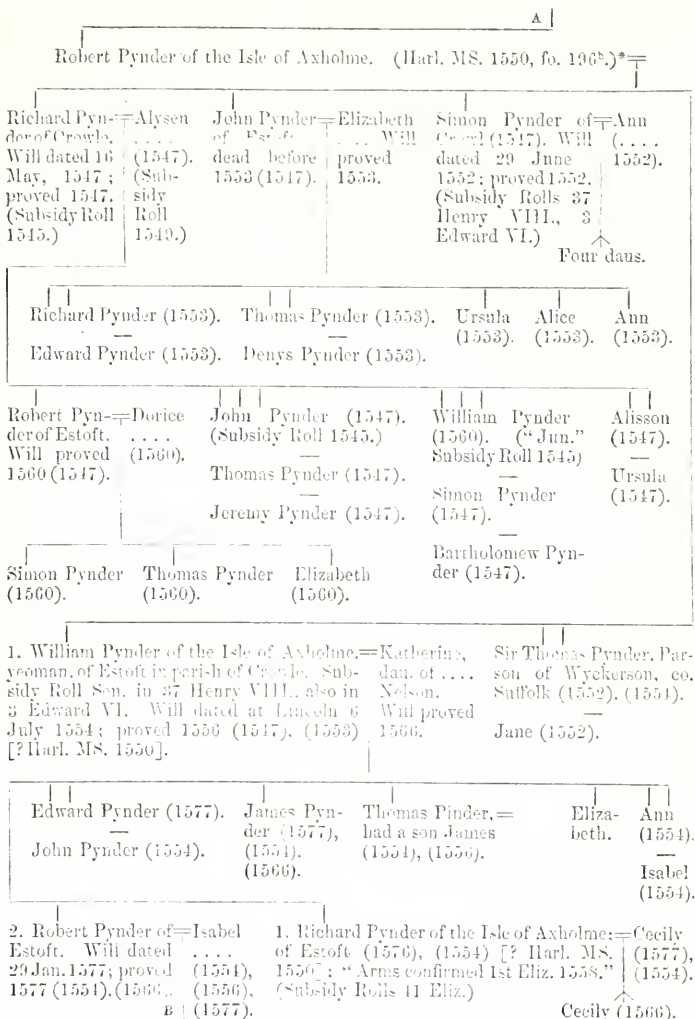 A
Robert Pynder of the Isle of Axholme. (Harl. MS. 1550, fo. 196b.)*=
Richard Pyn-=Alysen
der of Crowle. ....
Will dated 16 (1547).
May, 1547; (Sub-
proved 1547. sidy
(Subsidy Roll Roll
1545.) 1549.)
John Pynder=Elizabeth
of Estoft .... Will
dead before proved
1553 (1547). 1553.
Simon Pynder of=Ann
(1547). Will (....
dated 29 June 1552).
1552; proved 1552.
(Subsidy Rolls 37
Henry VIII., 3
Edward VI.)
Four daus.
Richard Pynder (1553).
—
Edward Pynder (1553).
Thomas Pynder (1553).
—
Denys Pynder (1553).
Ursula
(1553).
Alice
(1553).
Ann
(1553).
Robert Pyn-=Dorice
der of Estoft. ....
Will proved (1560).
1560 (1547).
John Pynder (1547).
(Subsidy Roll 1545.)
—
Thomas Pynder (1547).
—
Jeremy Pynder (1547).
William Pynder
(1560). ("Jun."
Subsidy Roll 1545)
—
Simon Pynder
(1547).
—
Bartholomew Pyn-
der (1547).
Alisson
(1547).
—
Ursula
(1547).
Simon Pynder
(1560).
Thomas Pynder
(1560).
Elizabeth
(1560).
1. William Pynder of the Isle of Axholme,=Katherine,
yeoman, of Estoft in parish of Crowle. Sub- dau. of ....
sidy Roll Sen. in 37 Henry VIII., also in Nelson.
3 Edward VI. Will dated at Lincoln 6 Will proved
July 1554; proved 1556 (1547), (1553) 1566.
[? Harl. MS. 1550].
Sir Thomas Pynder, Par-
son of Wyckerson, co.
Suffolk (1552), (1554).
—
Jane (1552).
Edward Pynder (1577).
—
John Pynder (1554).
James Pyn-
der (1577),
(1554).
(1566).
Thomas Pinder,=
had a son James
(1554), (1556).
Eliza-
beth.
Ann
(1554).
—
Isabel
(1554).
2. Robert Pynder of=Isabel
Estoft. Will dated ....
29 Jan. 1577; proved (1554),
1577 (1554). (1566.. (1556),
B (1577).
1. Richard Pynder of the Isle of Axholme;=Cecily
of Estoft (1576), (1554) [? Harl. MS. (1577),
1550]: "Arms confirmed 1st Eliz. 1558." (1554).
(Subsidy Rolls 41 Eliz.)
Cecily (1566).